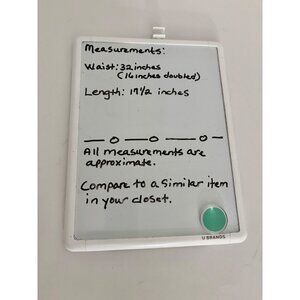 Measurements:
Waist: 32 inches
(16 inches doubled)
Length: 17 1/2 inches
All measurements are
approximate.
Compare to a Similar item
in your closet.
U BRANDS